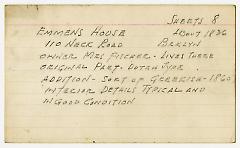 SHEETS 8
EMMENS HOUSE ABOUT 1836
110 NECK ROAD BKKLYN
OWNER MRS FISCHER - LIVES THERE
ORIGINAL PART - DUTCH TYPE
ADDITION - SORT OF GEORGIAN - 1860
INTERIOR DETAILS TYPICAL AND
IN GOOD CONDITION